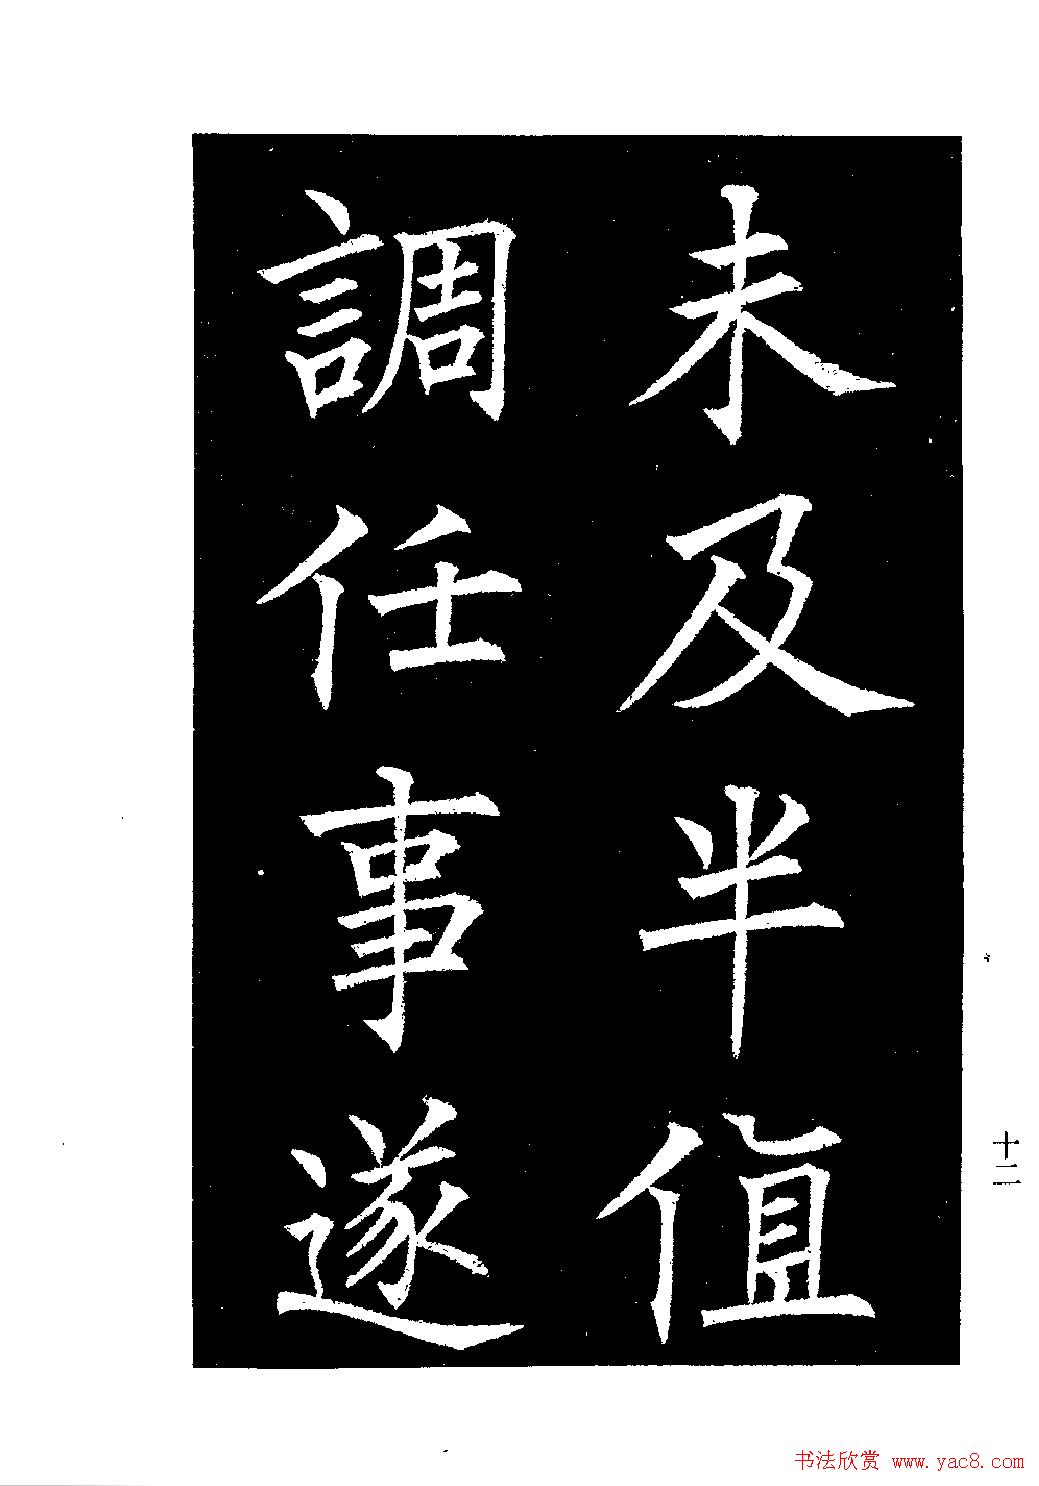 未及半值
調任事遂
十二
书法欣赏 www.yac8.com